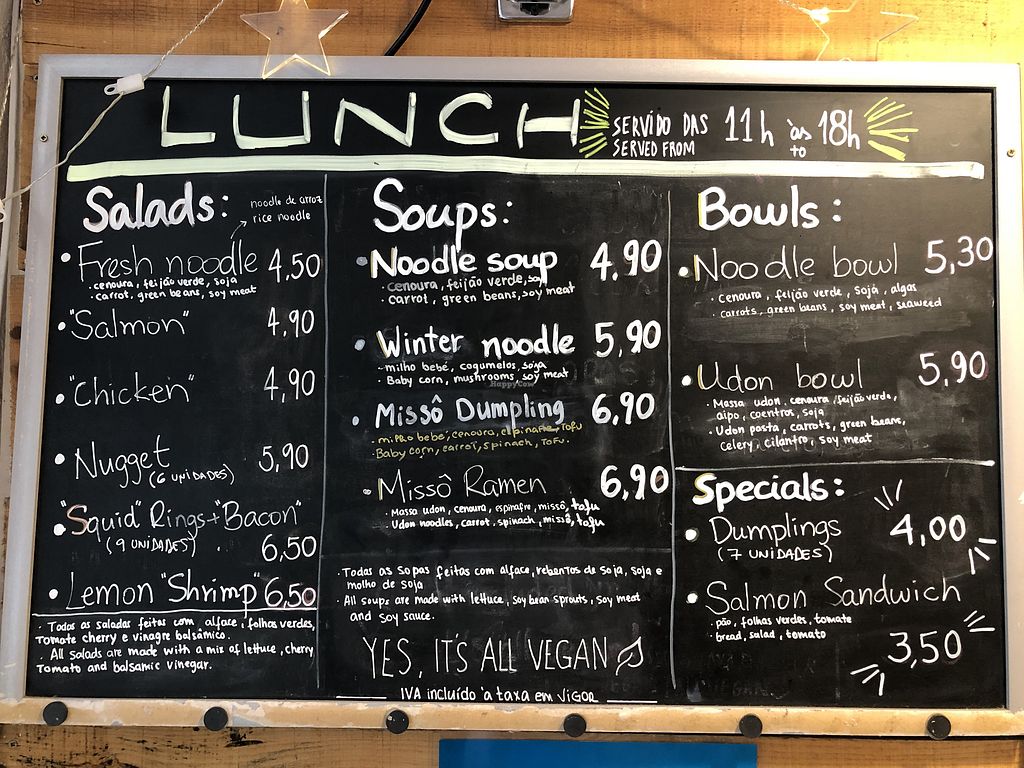 LUNCH
SERVIDO DAS 11h às 18h
SERVED FROM to
Salads:
noodle de arroz
rice noodle
• Fresh noodle 4,50
• cenoura, feijão verde, soja
• carrot, green beans, soy meat
• "Salmon" 4,90
• "Chicken" 4,90
• Nugget 5,90
(6 UNIDADES)
• "Squid" Rings + "Bacon"
(9 UNIDADES) 6,50
• Lemon "Shrimp" 6,50
• Todas as saladas feitas com alface, folhas verdes,
Tomate cherry e vinagre balsâmico.
• All salads are made with a mix of lettuce, cherry
Tomato and balsamic vinegar.
Soups:
• Noodle soup 4,90
• cenoura, feijão verde, soja
• carrot, green beans, soy meat
• Winter noodle 5,90
• milho bebé, cogumelos, soja
• Baby corn, mushrooms, soy meat
HappyCow
• Missô Dumpling 6,90
• milho bebé, cenoura, espinafre, Tofu
• Baby corn, carrot, spinach, Tofu.
• Missô Ramen 6,90
• Massa udon, cenoura, espinafre, missô, tofu
• Udon noodles, carrot, spinach, missô, tofu
• Todas as sopas feitas com alface, rebentos de soja, soja e
molho de soja
• All soups are made with lettuce, soy bean sprouts, soy meat
and soy sauce.
YES, IT'S ALL VEGAN
IVA incluído à taxa em vigor
Bowls:
• Noodle bowl 5,30
• cenoura, feijão verde, soja, algas
• carrots, green beans, soy meat, seaweed
• Udon bowl 5,90
• Massa udon, cenoura, feijão verde,
aipo, coentros, soja
• Udon pasta, carrots, green beans,
celery, cilantro, soy meat
Specials:
• Dumplings 4,00
(7 UNIDADES)
• Salmon Sandwich
• pão, folhas verdes, tomate
• bread, salad, tomato
3,50